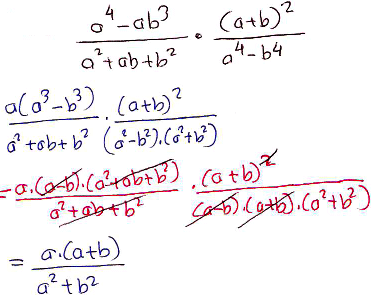 (a⁴-ab³)/(a²+ab+b²) · (a+b)²/(a⁴-b⁴)
a(a³-b³)/(a²+ab+b²) · (a+b)²/((a²-b²).(a²+b²))
= a.(a-b).(a²+ab+b²)/(a²+ab+b²) . (a+b)²/((a-b).(a+b).(a²+b²))
= a.(a+b)/(a²+b²)